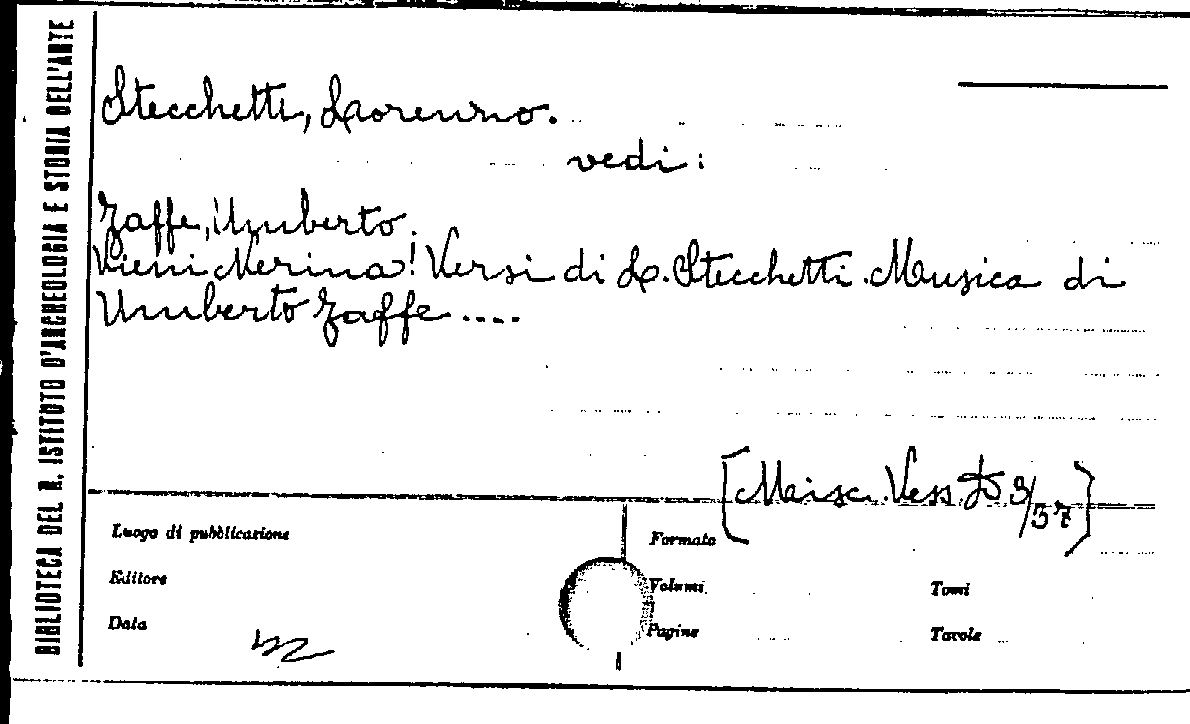 BIBLIOTECA DEL R. ISTITUTO D'ARCHEOLOGIA E STORIA DELL'ARTE
Stecchetti, Lorenzo.
vedi:
Zaffe, Umberto.
Vieni Nerina! Versi di L. Stecchetti. Musica di
Umberto Zaffe ....
[Misc. Vess. D 3/37]
Luogo di pubblicazione
Formato
Editore
Volumi
Tomi
Data
Pagine
Tavole